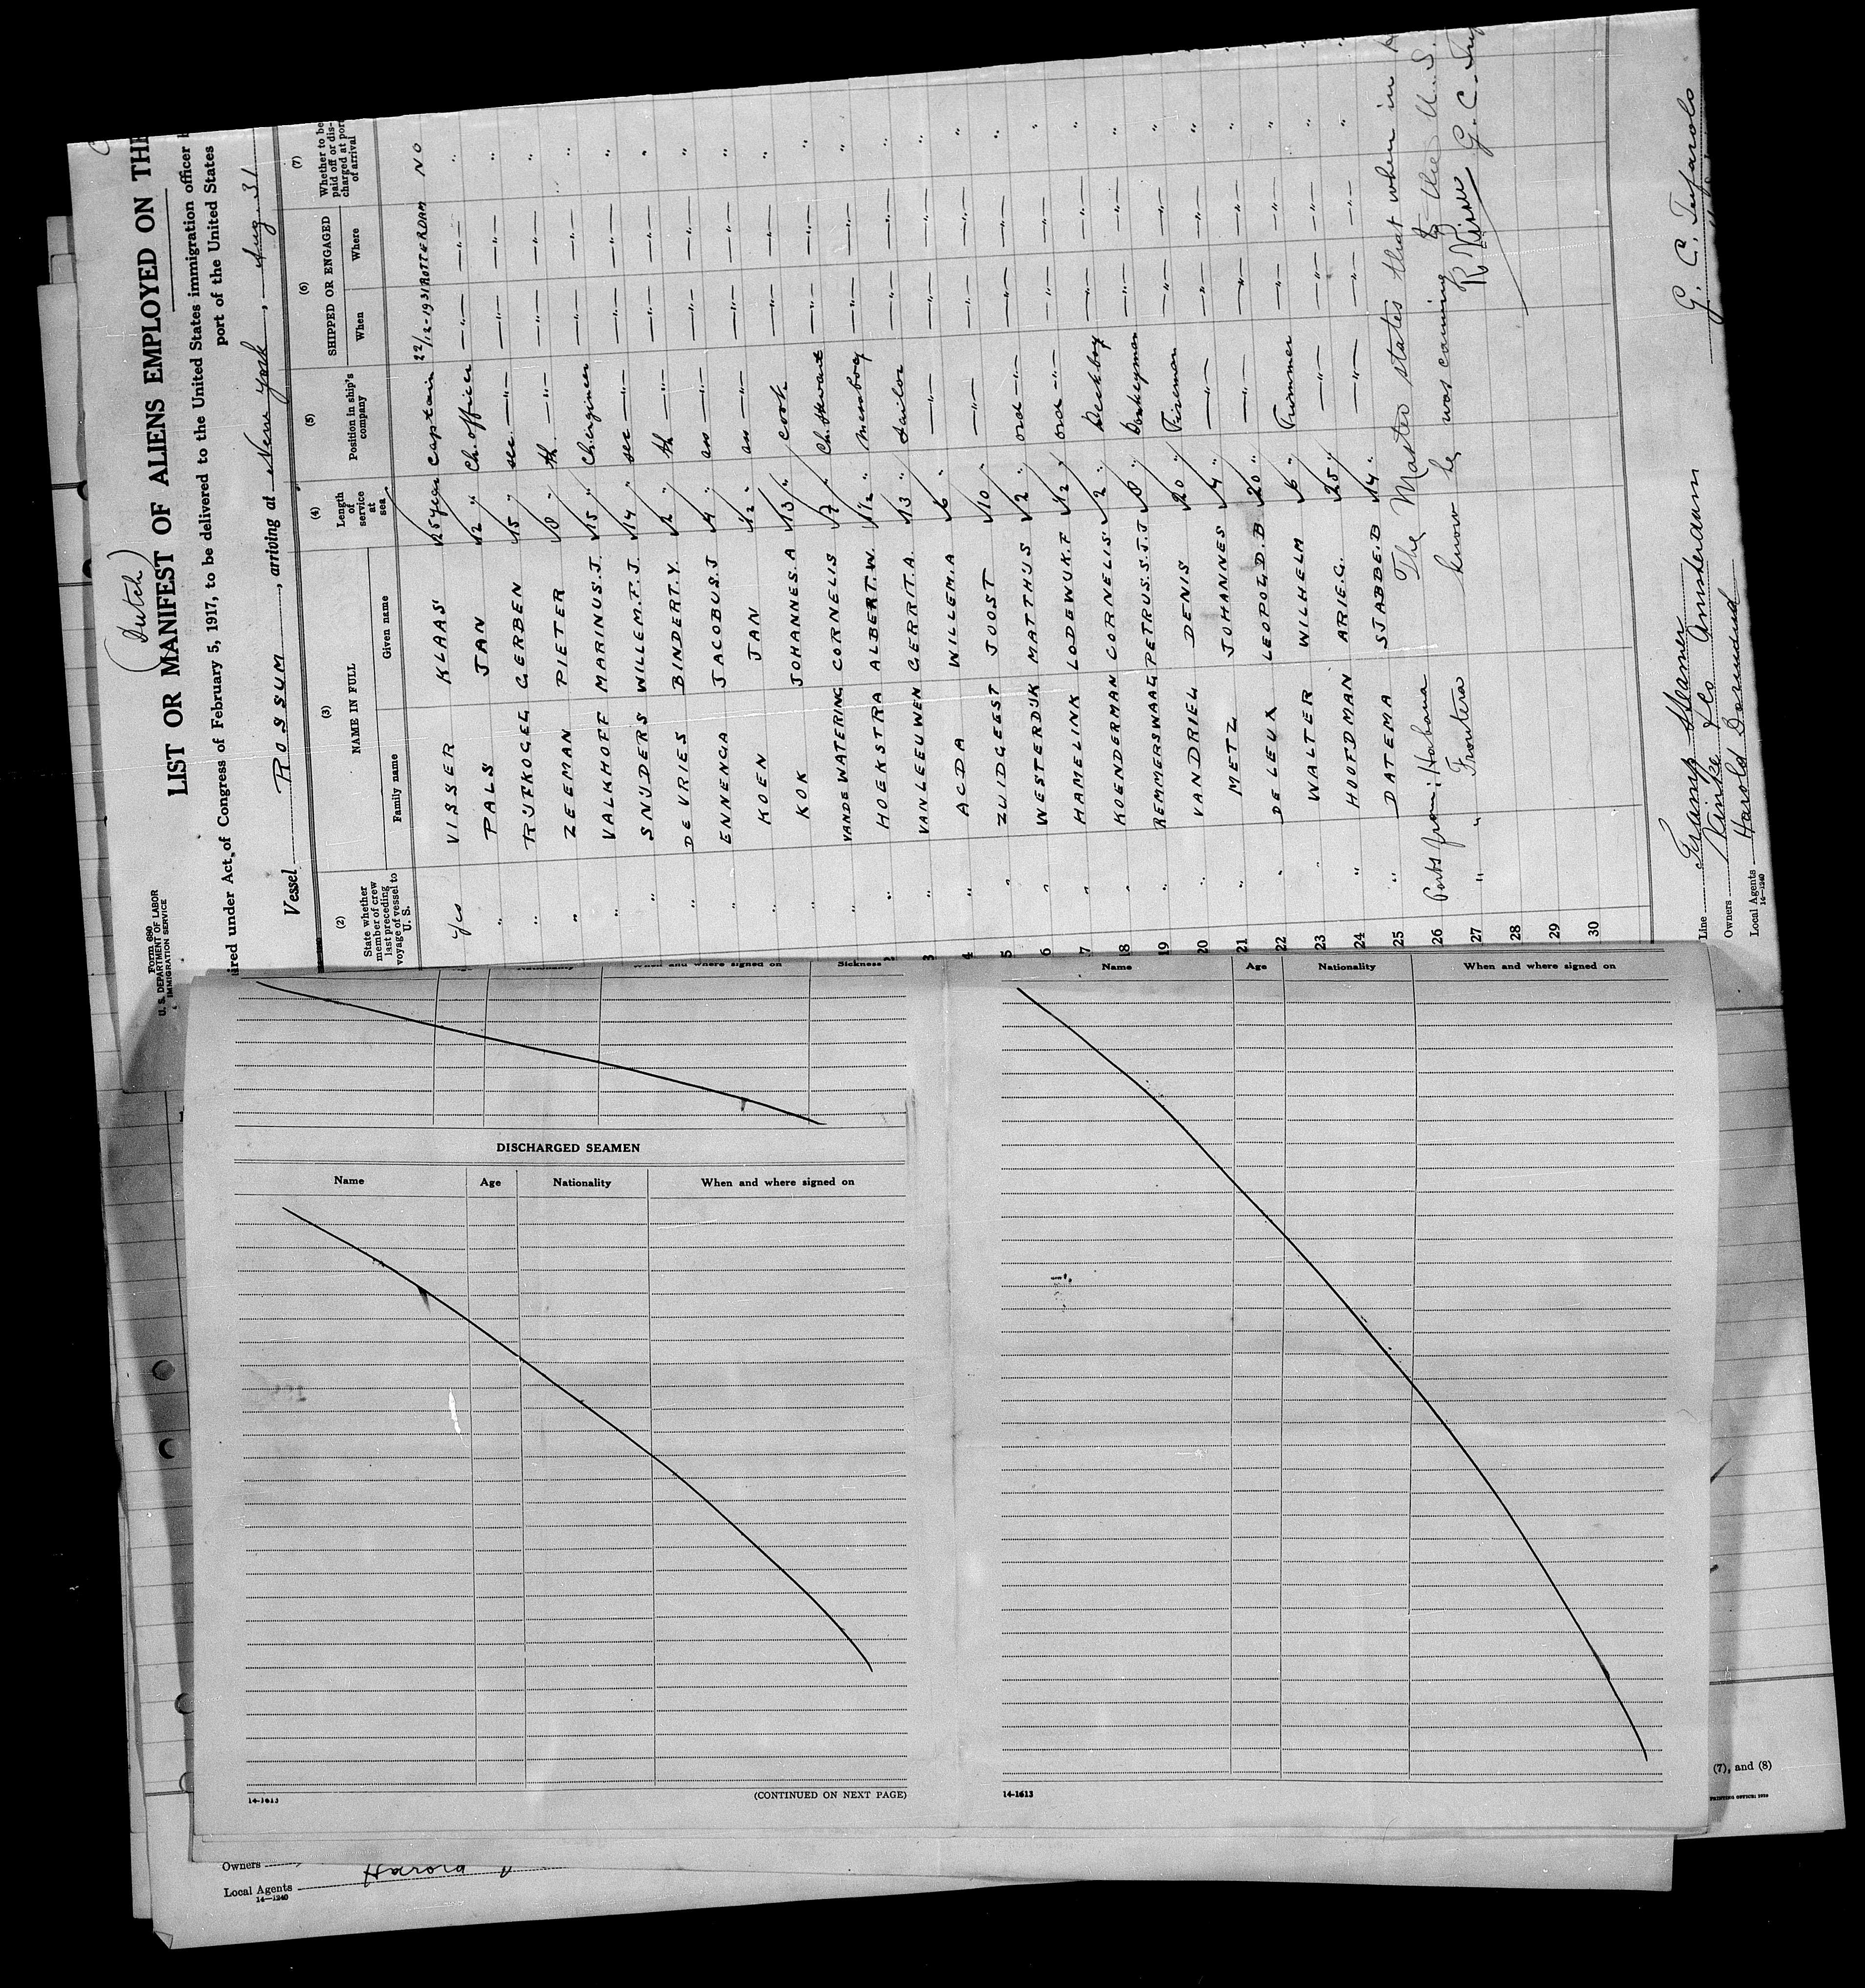 (Dutch)
Form 680
U. S. DEPARTMENT OF LABOR
IMMIGRATION SERVICE
LIST OR MANIFEST OF ALIENS EMPLOYED ON THE
ired under Act of Congress of February 5, 1917, to be delivered to the United States immigration officer
port of the United States
Vessel ROSSUM, arriving at New York, Aug 31
(2) (3) (4) (5) (6) (7)
State whether member of crew last preceding voyage of vessel to U. S.
NAME IN FULL
Family name Given name
Length of service at sea
Position in ship's company
SHIPPED OR ENGAGED
When Where
Whether to be paid off or discharged at port of arrival
yes VISSER KLAAS 25 year captain 22/12-1931 ROTTERDAM NO
" PALS JAN 12 " Ch. officer —"— —"— "
" RIJFKOGEL GERBEN 15 " sec —"— —"— —"— "
" ZEEMAN PIETER 8 " th —"— —"— —"— "
" VALKHOFF MARINUS.J. 15 " Ch. engineer —"— —"— "
" SNIJDERS WILLEM.F.J. 14 " sec —"— —"— —"— "
" DE VRIES BINDERT.Y. 2 " th —"— —"— —"— "
" ENNENGA JACOBUS.J 4 " as —"— —"— —"— "
" KOEN JAN 1/2 " as —"— —"— —"— "
" KOK JOHANNES.A 13 " cook —"— —"— "
" VANDE WATERING CORNELIS 7 " Ch. stewart —"— —"— "
" HOEKSTRA ALBERT.W. 1 1/2 " messboy —"— —"— "
" VAN LEEUWEN GERRIT.A. 13 " Sailor —"— —"— "
" ACDA WILLEM.A 6 " —"— —"— —"— "
5 " ZUIDGEEST JOOST 10 " —"— —"— —"— "
6 " WESTERDIJK MATTHIJS 2 " ord —"— —"— —"— "
7 " HAMELINK LODEWIJK.F 1/2 " ord —"— —"— —"— "
18 " KOENDERMAN CORNELIS 2 " Deckboy —"— —"— "
19 " REMMERSWAAL PETRUS.S.J.J 8 " Donkeyman —"— —"— "
20 " VAN DRIEL DENIS 20 " Fireman —"— —"— "
21 " METZ JOHANNES 4 " —"— —"— —"— "
22 " DE LEUX LEOPOLD.D.B 20 " —"— —"— —"— "
23 " WALTER WILHELM 6 " Trimmer —"— —"— "
24 " HOOFDMAN ARIE.G. 25 " —"— —"— —"— "
25 " DATEMA SJABBE.D 14 " —"— —"— —"— "
26 Ports from: Habana The Master states that when in
27 " " Frontera know he was coming to the U.S.
G. C.
28
29
30
Line Steamer
Owners & Co Amsterdam
Local Agents Harold
14—1240
G. C.
Nationality When and where signed on Sickness
DISCHARGED SEAMEN
Name Age Nationality When and where signed on
14-1613 (CONTINUED ON NEXT PAGE)
Name Age Nationality When and where signed on
14-1613
(7), and (8)
Owners
Local Agents Harold
14—1240